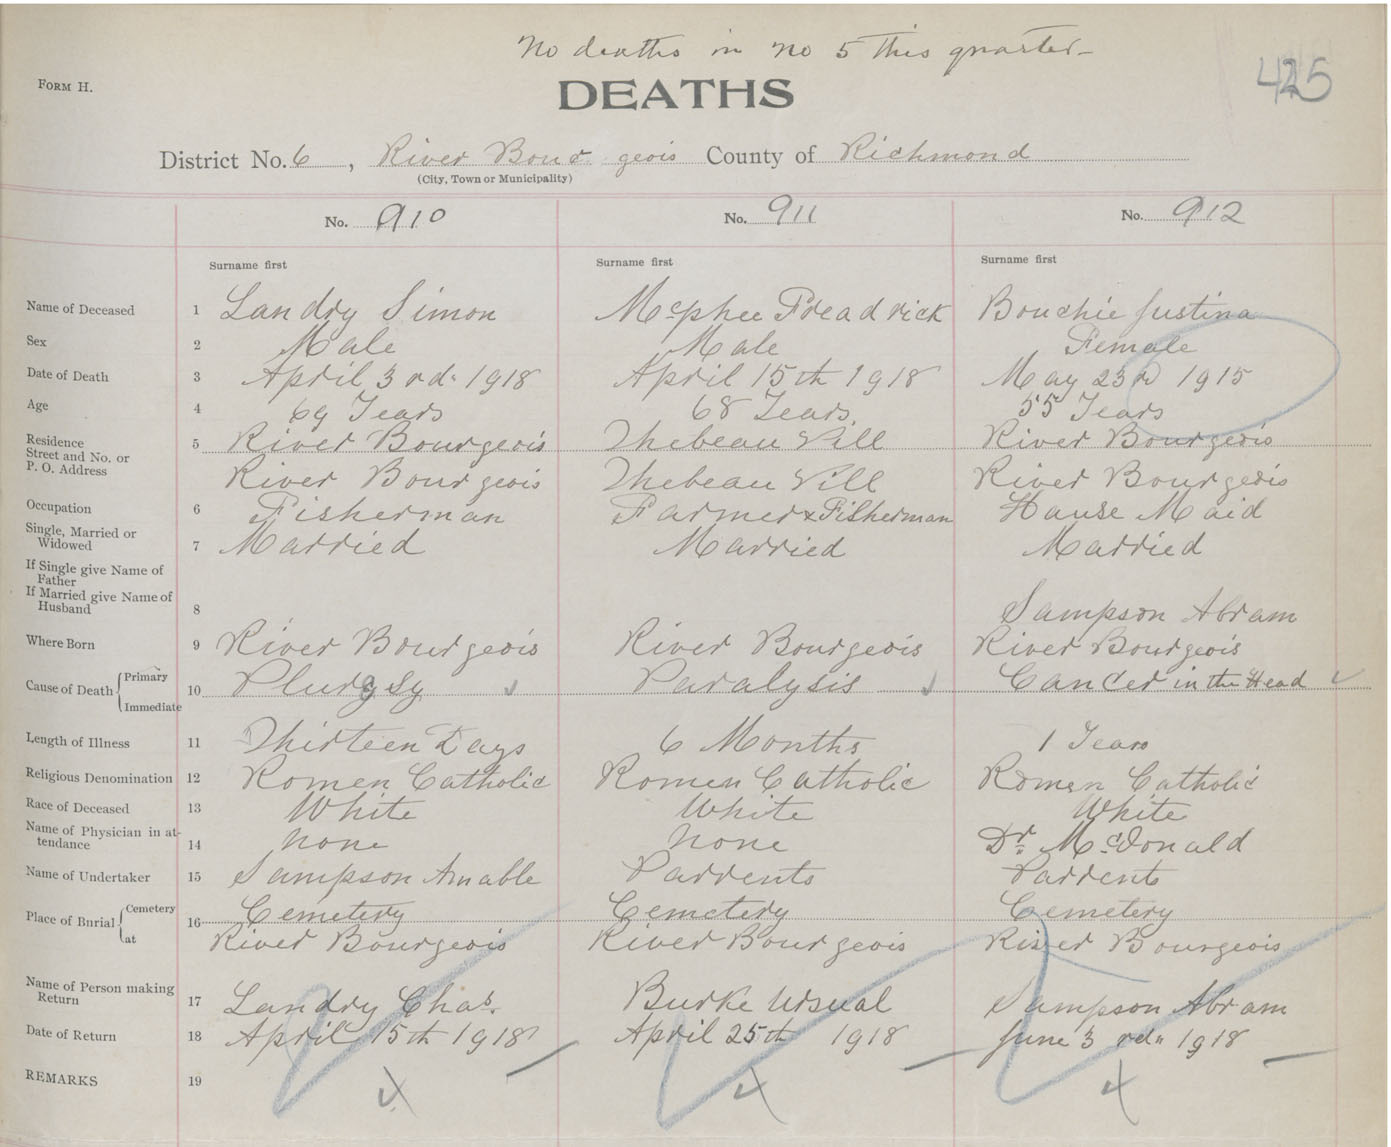 No deaths in No 5 this quarter-
425
FORM H.
DEATHS
District No. 6, River Bourgeois County of Richmond
(City, Town or Municipality)
No. 910 No. 911 No. 912
Surname first Surname first Surname first
Name of Deceased 1 Landry Simon Mcphee Freadrick Bouchie Justina
Sex 2 Male Male Female
Date of Death 3 April 3rd 1918 April 15th 1918 May 23rd 1915
Age 4 69 Years 68 Years 55 Years
Residence Street and No. or P. O. Address 5 River Bourgeois Thebeau Vill River Bourgeois
River Bourgeois Thebeau Vill River Bourgeois
Occupation 6 Fisherman Farmer & Fisherman Hause Maid
Single, Married or Widowed 7 Married Married Married
If Single give Name of Father
If Married give Name of Husband 8 Sampson Abram
Where Born 9 River Bourgeois River Bourgeois River Bourgeois
Cause of Death { Primary Immediate 10 Plurgsy Paralysis Cancer in the Head
Length of Illness 11 Thirteen Days 6 Months 1 Years
Religious Denomination 12 Romen Catholic Romen Catholic Romen Catholic
Race of Deceased 13 White White White
Name of Physician in attendance 14 None None Dr. McDonald
Name of Undertaker 15 Sampson Amable Parrents Parrents
Place of Burial { Cemetery 16 Cemetery Cemetery Cemetery
at River Bourgeois River Bourgeois River Bourgeois
Name of Person making Return 17 Landry Chas. Burke Ursual Sampson Abram
Date of Return 18 April 15th 1918 April 25th 1918 June 3rd 1918
REMARKS 19